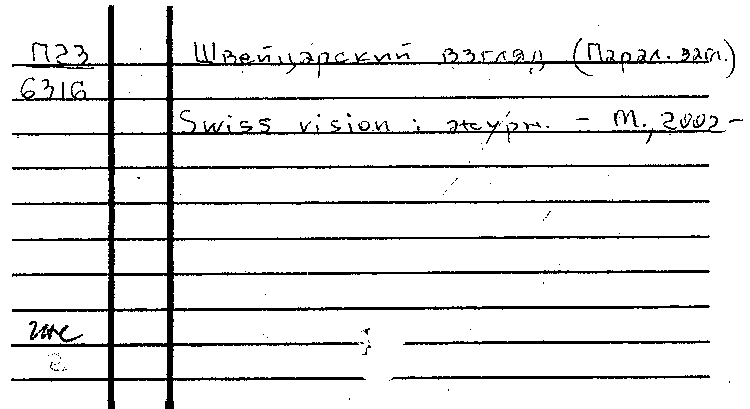 П23 Швейцарский взгляд (Парал. загл.)
6316
Swiss vision : журн. - М., 2002 -